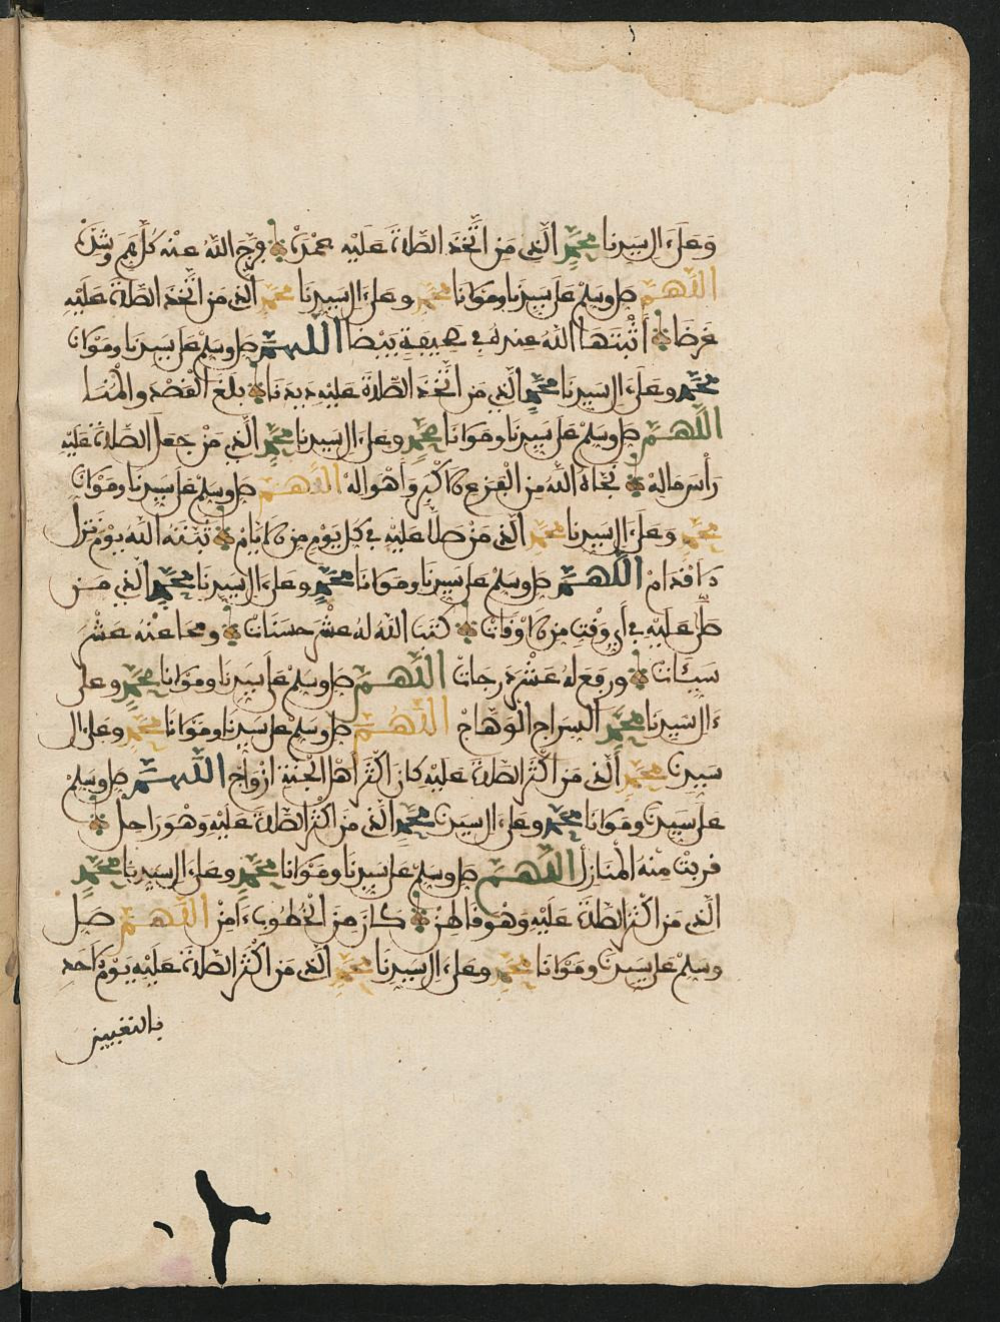 وعلى ءال سيدنا محمد الذي من اتخذ الصلاة عليه عمدة فرج الله عنه كل هم وشدة
اللهم صل وسلم على سيدنا ومولانا محمد وعلى ءال سيدنا محمد الذي من اتخذ الصلاة عليه
غرضا أثبتها الله عنده في صحيفة بيضا اللهم صل وسلم على سيدنا ومولانا
محمد وعلى ءال سيدنا محمد الذي من اتخذ الصلاة عليه ديدنا بلغ القصد والمنا
اللهم صل وسلم على سيدنا ومولانا محمد وعلى ءال سيدنا محمد الذي من جعل الصلاة عليه
رأس ماله نجاه الله من الفزع الاكبر وأهواله اللهم صل وسلم على سيدنا ومولانا
محمد وعلى ءال سيدنا محمد الذي من صلا عليه في كل يوم من الايام ثبته الله يوم تزل
الاقدام اللهم صل وسلم على سيدنا ومولانا محمد وعلى ءال سيدنا محمد الذي من
صلى عليه في أي وقت من الاوقات كتب الله له عشر حسنات ومحا عنه عشر
سيئات ورفع له عشر درجات اللهم صل وسلم على سيدنا ومولانا محمد وعلى
ءال سيدنا محمد السراج الوهاج اللهم صل وسلم على سيدنا ومولانا محمد وعلى ءال
سيدنا محمد الذي من اكثر الصلاة عليه كان اكثر أهل الجنة ازواج اللهم صل وسلم
على سيدنا ومولانا محمد وعلى ءال سيدنا محمد الذي من اكثر الصلاة عليه وهو راحل
قربت منه المنازل اللهم صل وسلم على سيدنا ومولانا محمد وعلى ءال سيدنا محمد
الذي من اكثر الصلاة عليه وهو قاطن كان من الخطوب ءامن اللهم صل
وسلم على سيدنا ومولانا محمد وعلى ءال سيدنا محمد الذي من اكثر الصلاة عليه يوم الاحد